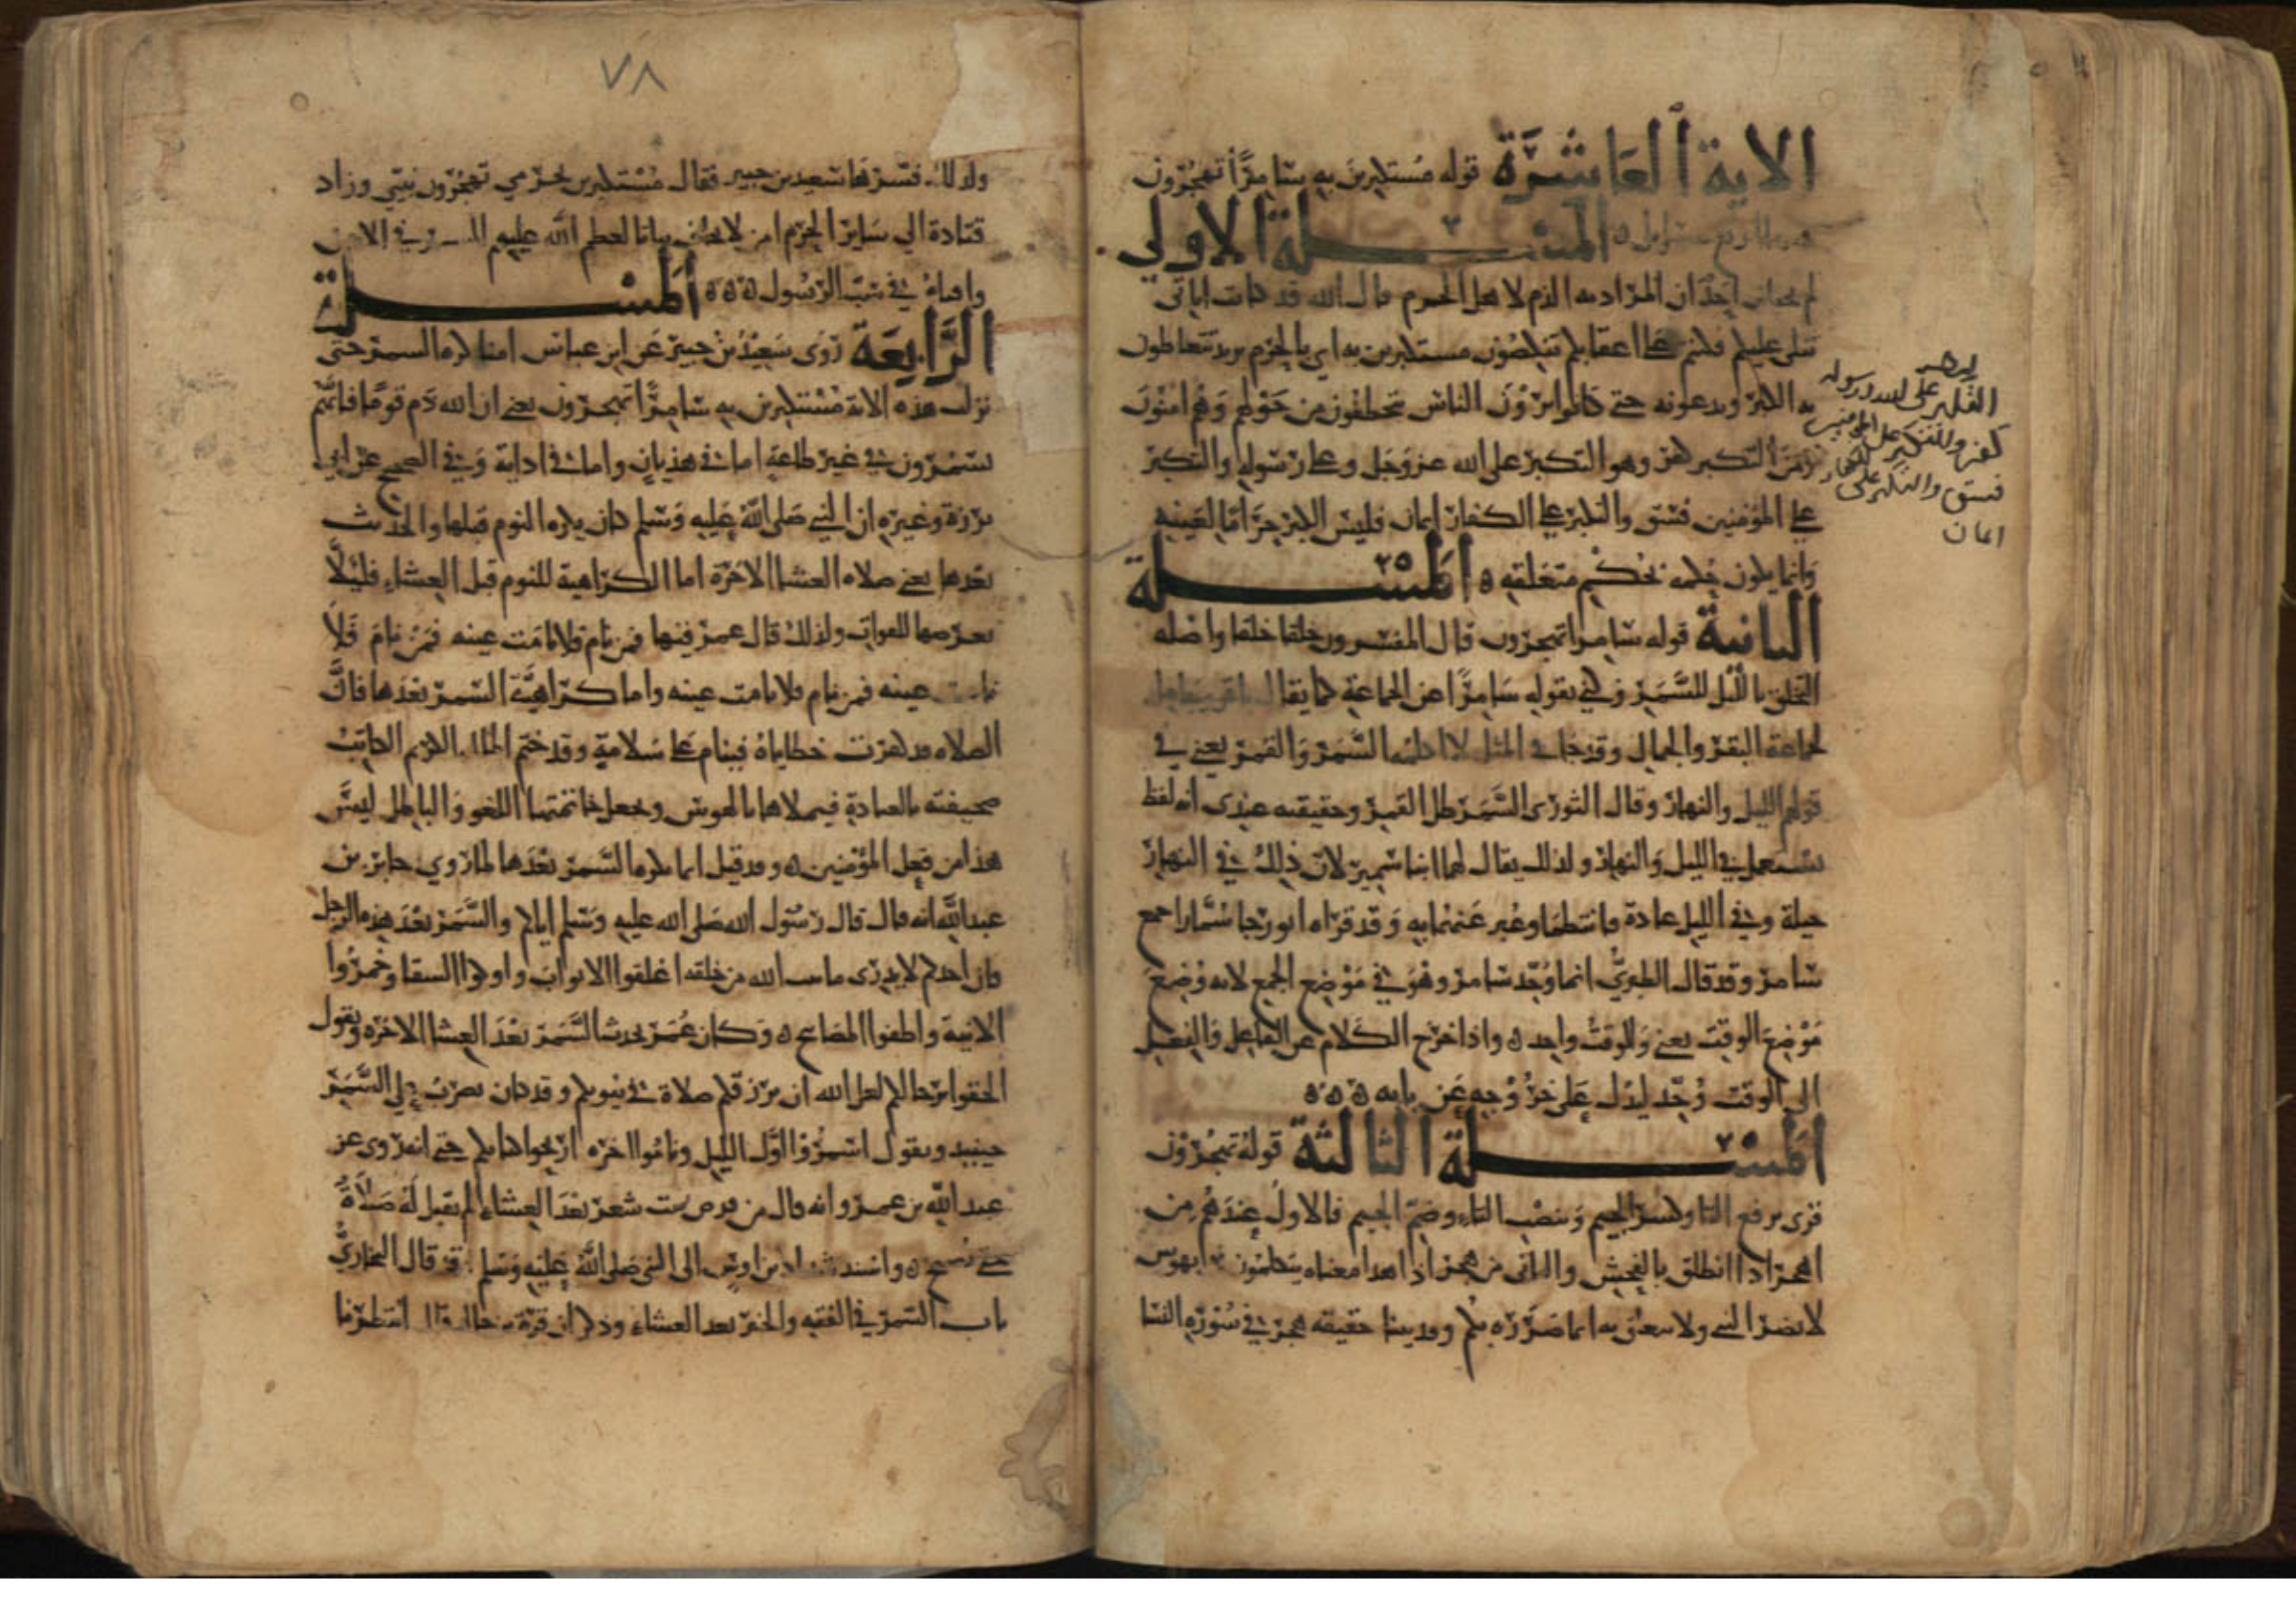 الاية العاشرة قوله مستكبرين به سامرا تهجرون
المسلة الاولي
لم يختلف احد ان المراد به الذم لاهل الحرم قال الله قد كانت اياتي
تتلى عليكم فكنتم على اعقابكم تنكصون مستكبرين به اي بالحرم يريد يتعاطون
به الكبر ويدعونه حتى كانوا يرون الناس يتخطفون من حولهم وهم امنون
ومن التكبر كفر وهو التكبر على الله عز وجل وعلى رسوله والتكبر
على المؤمنين فسق والتكبر على الكفار ايمان فليس الكبر حراما لعينه
وانما يكون حكمه بحكم متعلقه ه المسلة
الثانية قوله سامرا تهجرون قال المفسرون حلقا حلقا واصله
التحلق بالليل للسمر وكنى بقوله سامرا عن الجماعة كما يقال باقر وجامل
لجماعة البقر والجمال وقد جا في المثل لا اكلمه السمر والقمر يعني في
قولهم الليل والنهار وقال الثوري السمر ظل القمر وحقيقته عندي انه لفظ
يستعمل في الليل والنهار ولذلك يقال لهما ابنا سمير لان ذلك في النهار
جبلة وفي الليل عادة فانتظما وعبر عنهما به وقد قراه ابو رجا سمارا جمع
سامر وقد قال الطبري انما وحد سامر وهو في موضع الجمع لانه وضع
موضع الوقت يعني والوقت واحد ه واذا خرج الكلام عن الفاعل والفعيل
الى الوقت وحد ليدل على خروجه عن بابه ه ه ه
المسلة الثالثة قوله تهجرون
قرى برفع التا وكسر الجيم وبنصب التاء وضم الجيم فالاول عندهم من
اهجر اذا انطلق بالفحش والثاني من هجر اذا هذا معناه يتكلمون بهوس
لا يضر النبي ولا يتعلق به انما ضرره بكم وقد بينا حقيقة هجر في سورة النسا
التكبر على الله ورسوله
كفر والتكبر على المؤمنين
فسق والتكبر على الكفار
ايمان
٧٨
ولذلك فسرها سعيد بن جبير فقال مستكبرين بحرمي تهجرون نبيي وزاد
قتادة الي ساير الحرم امن لا يخاف بياتا لعظم الله عليهم
في سب الرسول ه ه ه المسلة
الرابعة روى سعيد بن جبير عن ابن عباس انما كره السمر حتى
نزلت هذه الاية مستكبرين به سامرا تهجرون يعني ان الله ذم قوما فانهم
يسمرون في غير طاعة اما في هذيان واما في اداية وفي الصحيح عن ابي
برزة وغيره ان النبي صلى الله عليه وسلم كان يكره النوم قبلها والحديث
بعدها يعني صلاه العشا الاخرة اما الكراهية للنوم قبل العشاء فليلا
يعرضها للفوات ولذلك قال عمر فيها فمن نام فلا نامت عينه فمن نام فلا
نامت عينه فمن نام فلا نامت عينه واما كراهية السمر بعدها فان
الصلاه قد كفرت خطاياه فينام على سلامة وقد ختم الملك الكريم الكاتب
صحيفته بالعبادة فيملاها بالهوس ويجعل خاتمتها اللغو والباطل ليس
هذا من فعل المؤمنين ه وقد قيل انما يكره السمر بعدها لما روي جابر بن
عبد الله انه قال قال رسول الله صلى الله عليه وسلم اياكم والسمر بعد هدة الرجل
فان احدكم لا يدري ما يبث الله من خلقه اغلقوا الابواب واوكوا السقا وخمروا
الانية واطفوا المصابيح ه وكان عمر يجدب السمر بعد العشا الاخره ويقول
الحقوا برحالكم لعل الله ان يرزقكم صلاة في بيوتكم وقد كان يضرب على السمر
حينيد ويقول اسمروا اول الليل ونامو اخره اريحوا كتابكم حتى انه روى عن
عبد الله بن عمرو انه قال من قرض بيت شعر بعد العشاء لم تقبل له صلاة
حتى يصبح ه واسنده شداد بن اوس الى النبي صلى الله عليه وسلم وقد قال البخاري
باب السمر في الفقه والخير بعد العشاء وذكر ان قرة بن خالد قال انتظرنا